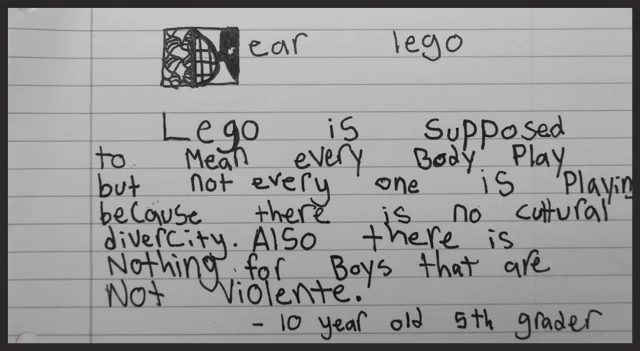 Dear lego
Lego is supposed
to Mean every Body Play
but not every one is Playin
because there is no cultural
divercity. Also there is
Nothing for Boys that are
Not Violente.
- 10 year old 5th grader